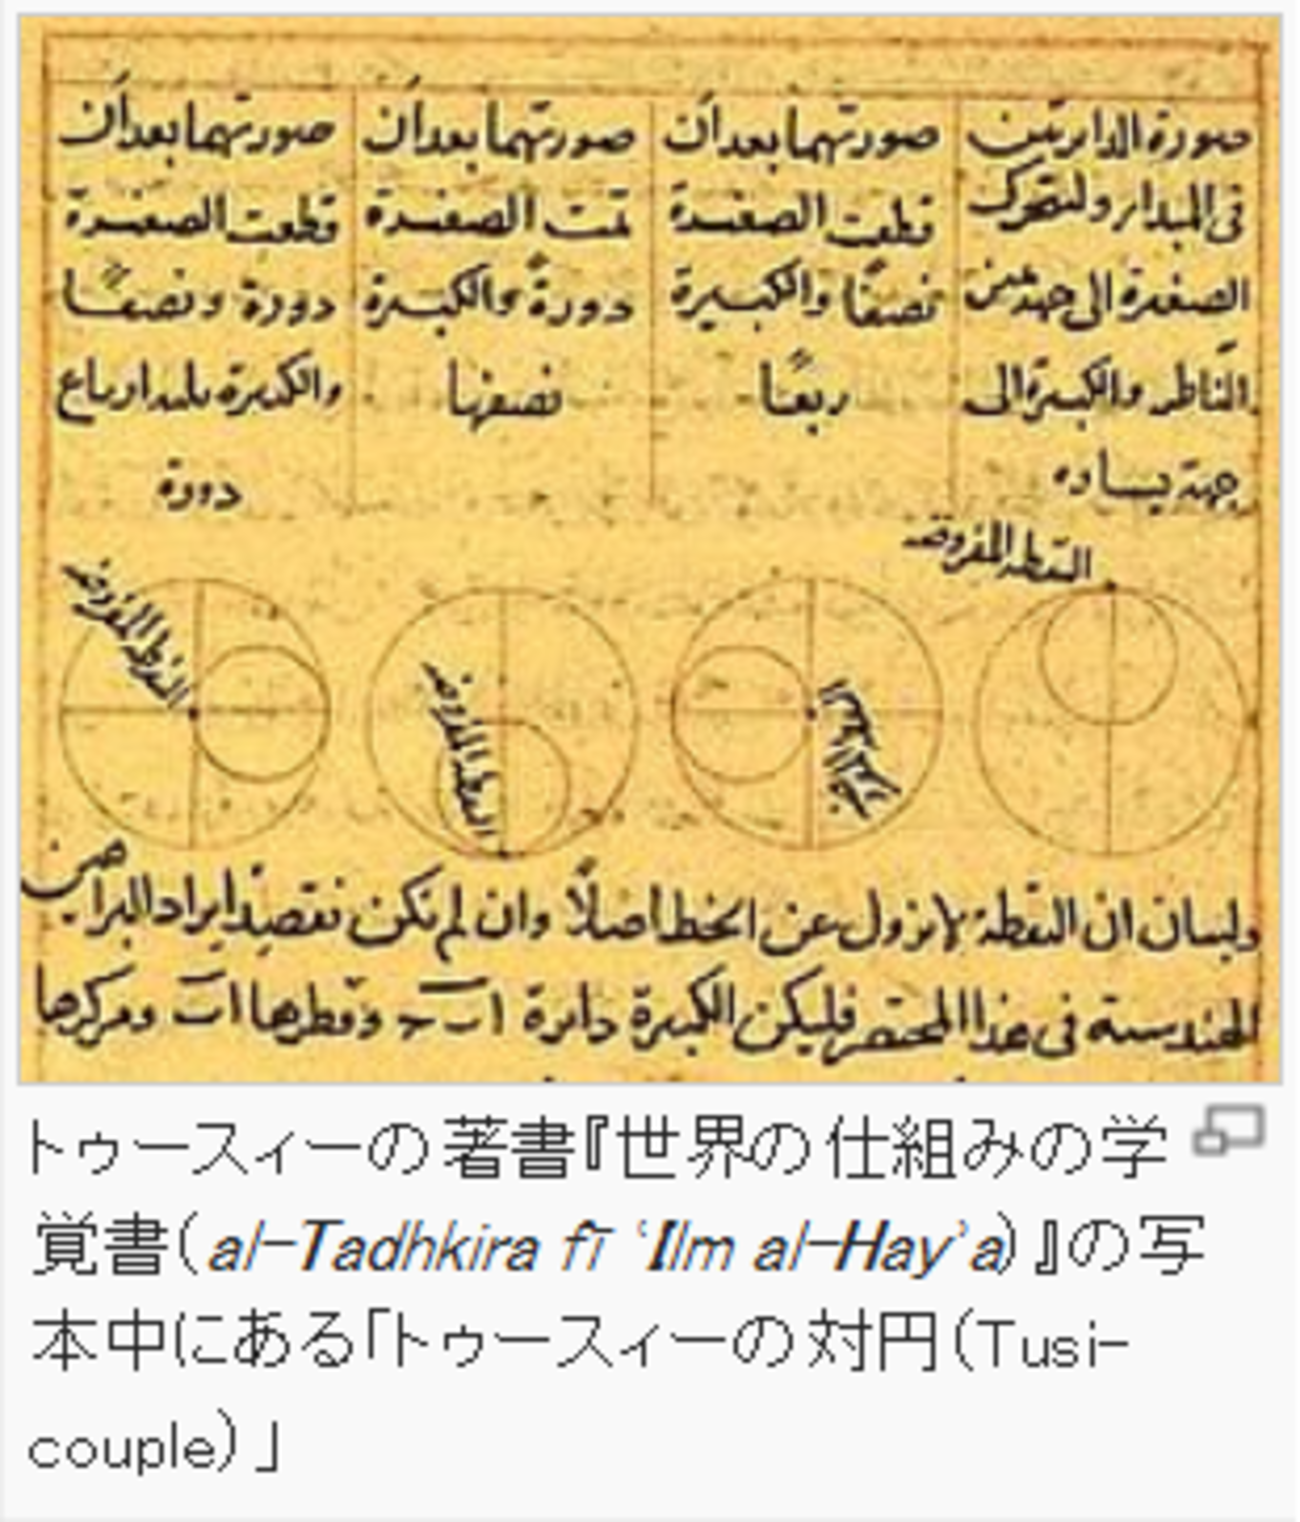 صورة الدائرتين
في المبدا ولتتحرك
الصغيرة الى جهة يمين
الناظر والكبيرة الى
جهة يساره
صورتهما بعد ان
قطعت الصغيرة
نصفًا والكبيرة
ربعًا
صورتهما بعد ان
تمت الصغيرة
دورةً والكبيرة
نصفها
صورتهما بعد ان
قطعت الصغيرة
دورة ونصفًا
والكبيرة ثلثة ارباع
دورة
النقطة المفروضة
النقطة المفروضة
النقطة المفروضة
النقطة المفروضة
ولبيان ان النقطة لا تزول عن الخط اصلًا وان لم نكن نقصد ايراد البراهين
الهندسية في هذا المختصر فليكن الكبيرة دائرة وقطرها اب ومركزها
トゥースィーの著書『世界の仕組みの学
覚書(al-Tadhkira fī ʿIlm al-Hayʾa)』の写
本中にある「トゥースィーの対円(Tusi-
couple)」